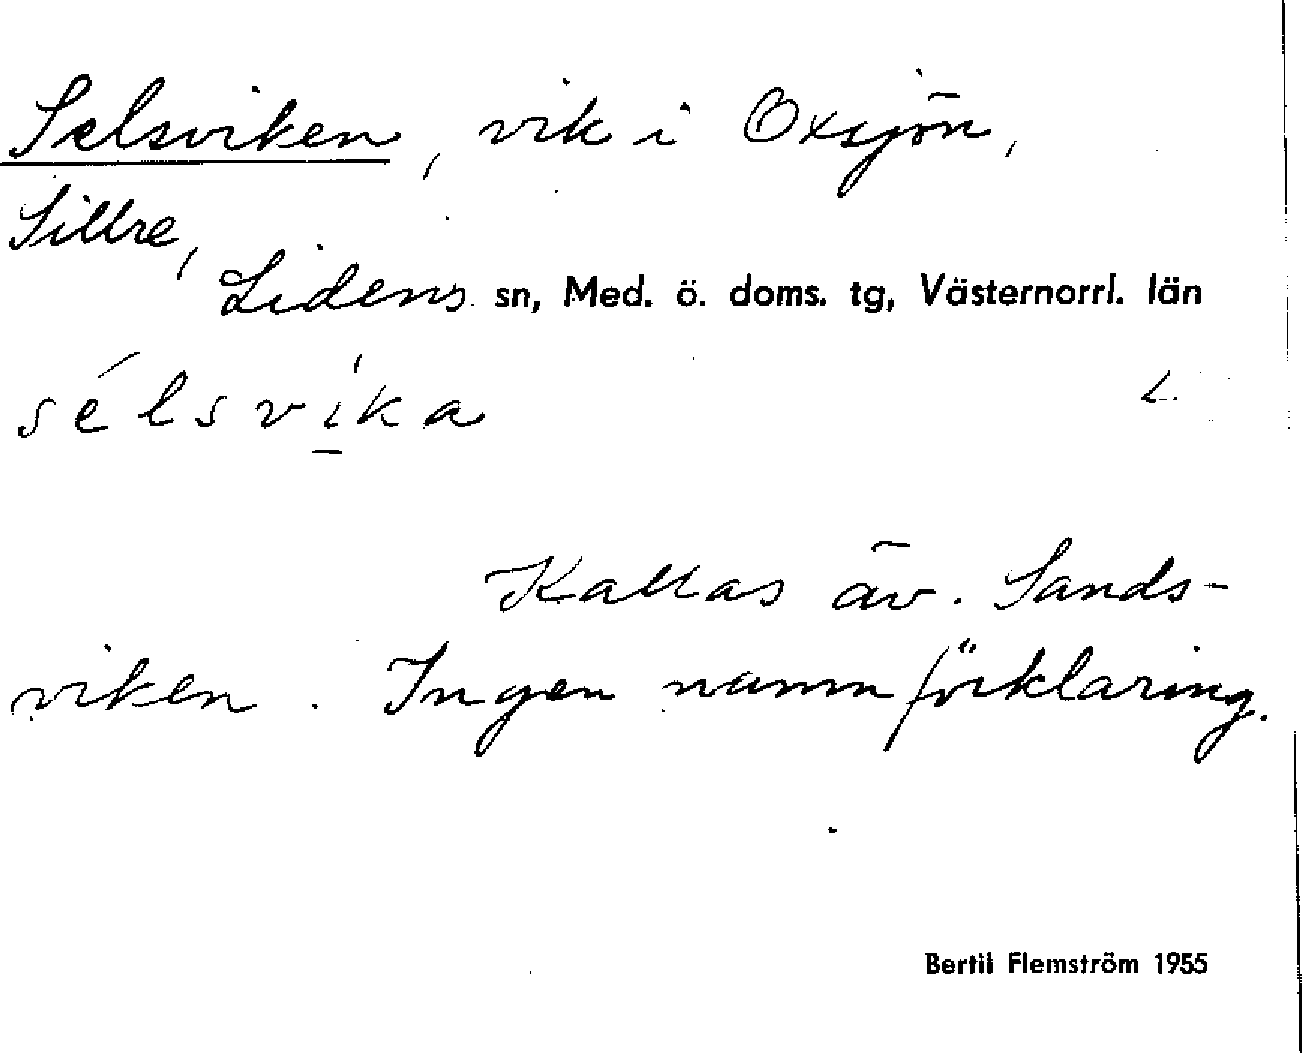 Selsviken, vik i Oxsjön,
Sillre,
Lidens sn, Med. ö. doms. tg, Västernorrl. län
sélsví̱ka L.
Kallas äv. Sands-
viken. Ingen namnförklaring.
Bertil Flemström 1955